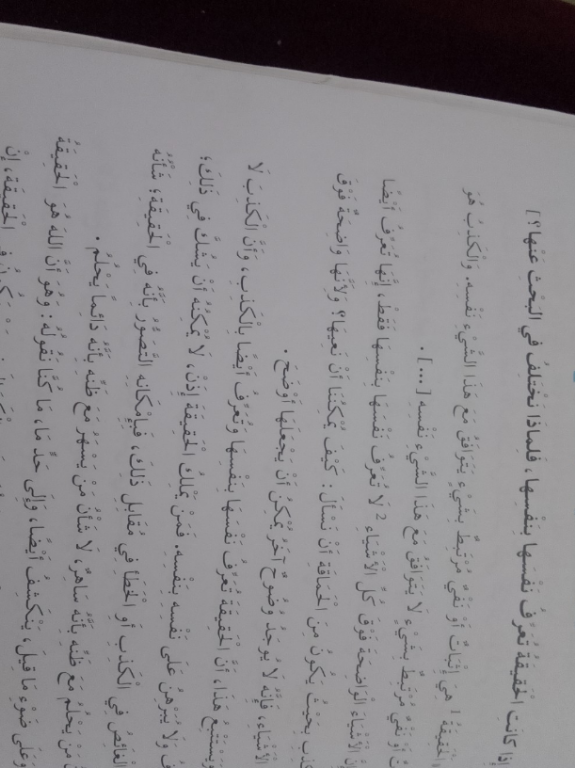 إذا كَانَتِ الْحَقِيقَةُ تُعَرِّفُ نَفْسَهَا بِنَفْسِهَا، فَلِمَاذَا نَخْتَلِفُ فِي الْبَحْثِ عَنْهَا؟]
الْحَقِيقَةُ 1 هِيَ إِثْبَاتٌ أَوْ نَفْيٌ مُرْتَبِطٌ بِشَيْءٍ يَتَوَافَقُ مَعَ هَذَا الشَّيْءِ نَفْسِهِ. وَالْكَذِبُ هُوَ
أَوْ نَفْيٌ مُرْتَبِطٌ بِشَيْءٍ لَا يَتَوَافَقُ مَعَ هَذَا الشَّيْءِ نَفْسِهِ [...].
الْأَشْيَاءَ الْوَاضِحَةَ فَوْقَ كُلِّ الْأَشْيَاءِ 2 لَا تُعَرِّفُ نَفْسَهَا بِنَفْسِهَا فَقَطْ، إِنَّهَا تُعَرِّفُ أَيْضًا
بِحَيْثُ يَكُونُ مِنَ الْحَمَاقَةِ أَنْ نَسْأَلَ: كَيْفَ يُمْكِنُنَا أَنْ نَعِيَهَا؟ وَلِأَنَّهَا وَاضِحَةٌ فَوْقَ
الْأَشْيَاءِ، فَإِنَّهُ لَا يُوجَدُ وُضُوحٌ آخَرُ يُمْكِنُ أَنْ يَجْعَلَهَا أَوْضَحَ.
وَيَسْتَتْبِعُ هَذَا، أَنَّ الْحَقِيقَةَ تُعَرِّفُ نَفْسَهَا بِنَفْسِهَا وَتُعَرِّفُ أَيْضًا بِالْكَذِبِ، وَأَنَّ الْكَذِبَ لَا
وَلَا يُبَرْهِنُ عَلَى نَفْسِهِ بِنَفْسِهِ. فَمَنْ يَمْلِكُ الْحَقِيقَةَ إِذَنْ، لَا يُمْكِنُهُ أَنْ يَشُكَّ فِي ذَلِكَ،
الْغَائِصُ فِي الْكَذِبِ أَوِ الْخَطَأِ فِي مُقَابِلِ ذَلِكَ، فَبِإِمْكَانِهِ التَّصَوُّرُ بِأَنَّهُ فِي الْحَقِيقَةِ؛ شَأْنُهُ
مَنْ يَحْلُمُ مَعَ ظَنِّهِ بِأَنَّهُ سَاهِرٌ، لَا شَأْنُ مَنْ يَسْهَرُ مَعَ ظَنِّهِ بِأَنَّهُ دَائِماً يَحْلُمُ.
وَعَلَى ضَوْءِ مَا قِيلَ، يَنْكَشِفُ أَيْضًا، وَإِلَى حَدٍّ مَا، مَا كُنَّا نَقُولُهُ: وَهُوَ أَنَّ اللهَ هُوَ الْحَقِيقَةُ
الْحَقِيقَةِ، إِنْ